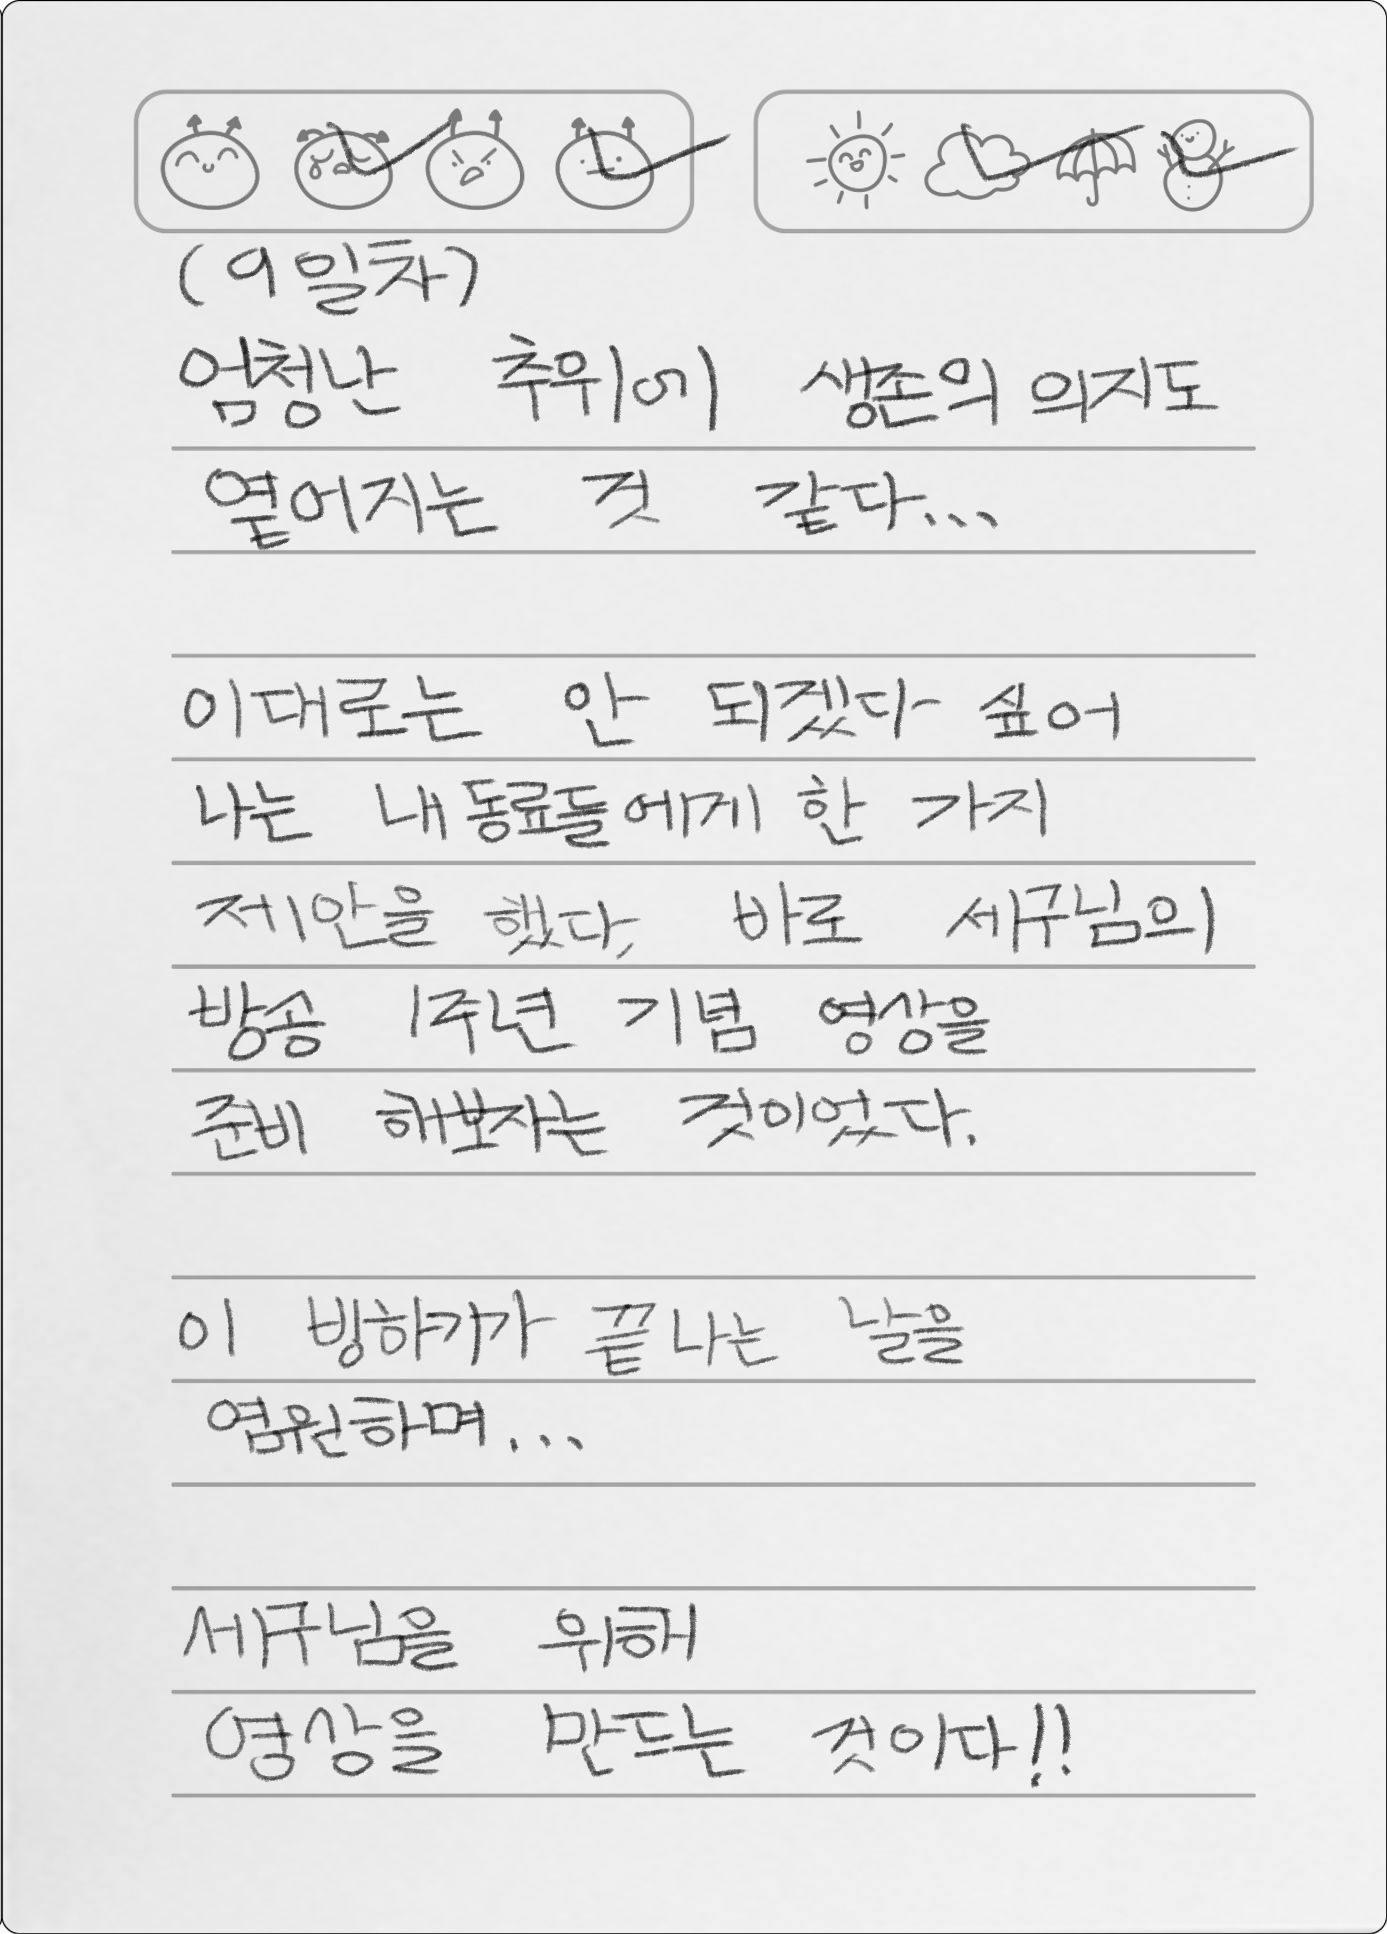 (9일차)
엄청난 추위에 생존의 의지도
옅어지는 것 같다...
이대로는 안 되겠다 싶어
나는 내 동료들에게 한 가지
제안을 했다, 바로 세구님의
방송 1주년 기념 영상을
준비 해보자는 것이었다.
이 빙하기가 끝나는 날을
염원하며...
세구님을 위해
영상을 만드는 것이다!!